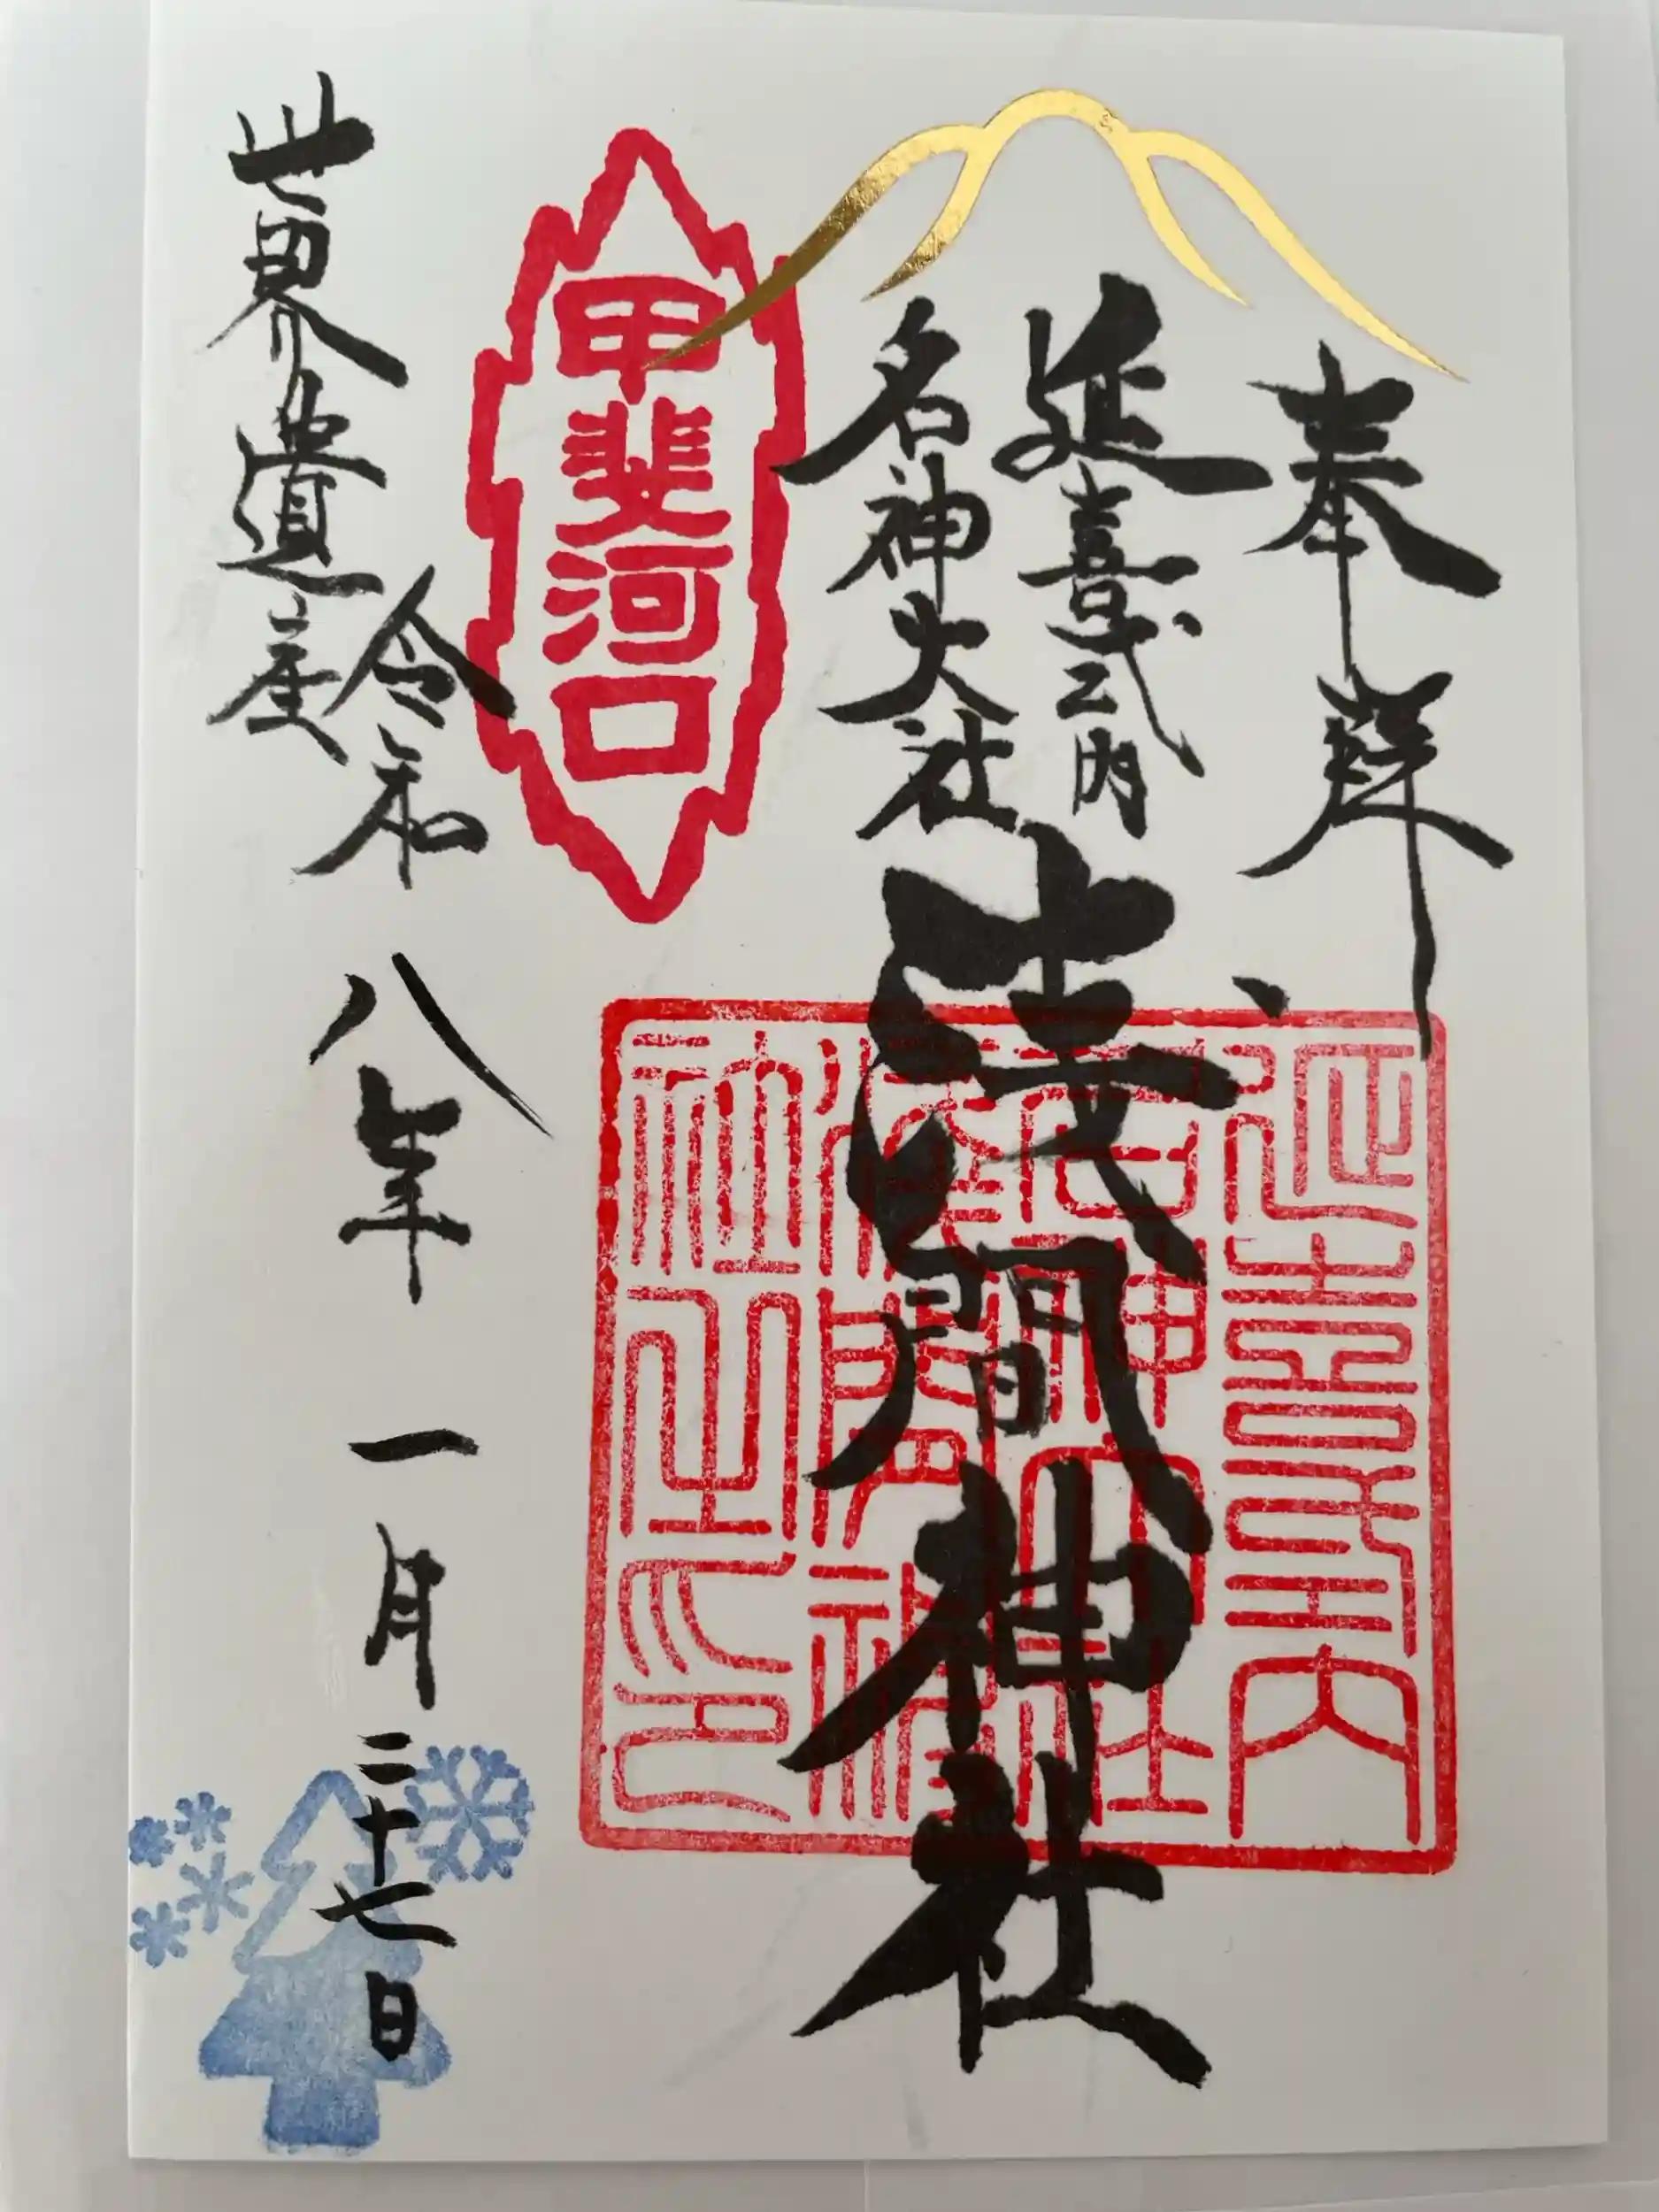 奉拝
延喜式内
名神大社
浅間神社
甲斐河口
延喜式内
名神大社
浅間神
社之印
令和八年一月二十七日
世界遺産